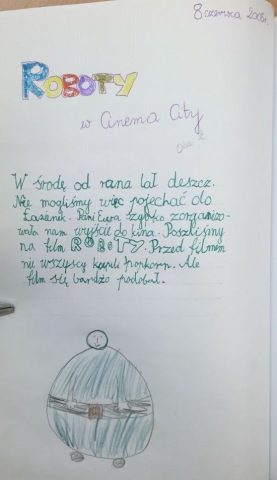 8 czerwca 2005r.
ROBOTY
w Cinema City
W środę od rana lał deszcz.
Nie mogliśmy więc pojechać do
Łazienek. Pani Ewa szybko zorganizo-
wała nam wyjście do kina. Poszliśmy
na film ROBOTY. Przed filmem
nie wszyscy kupili popkorn. Ale
film się bardzo podobał.